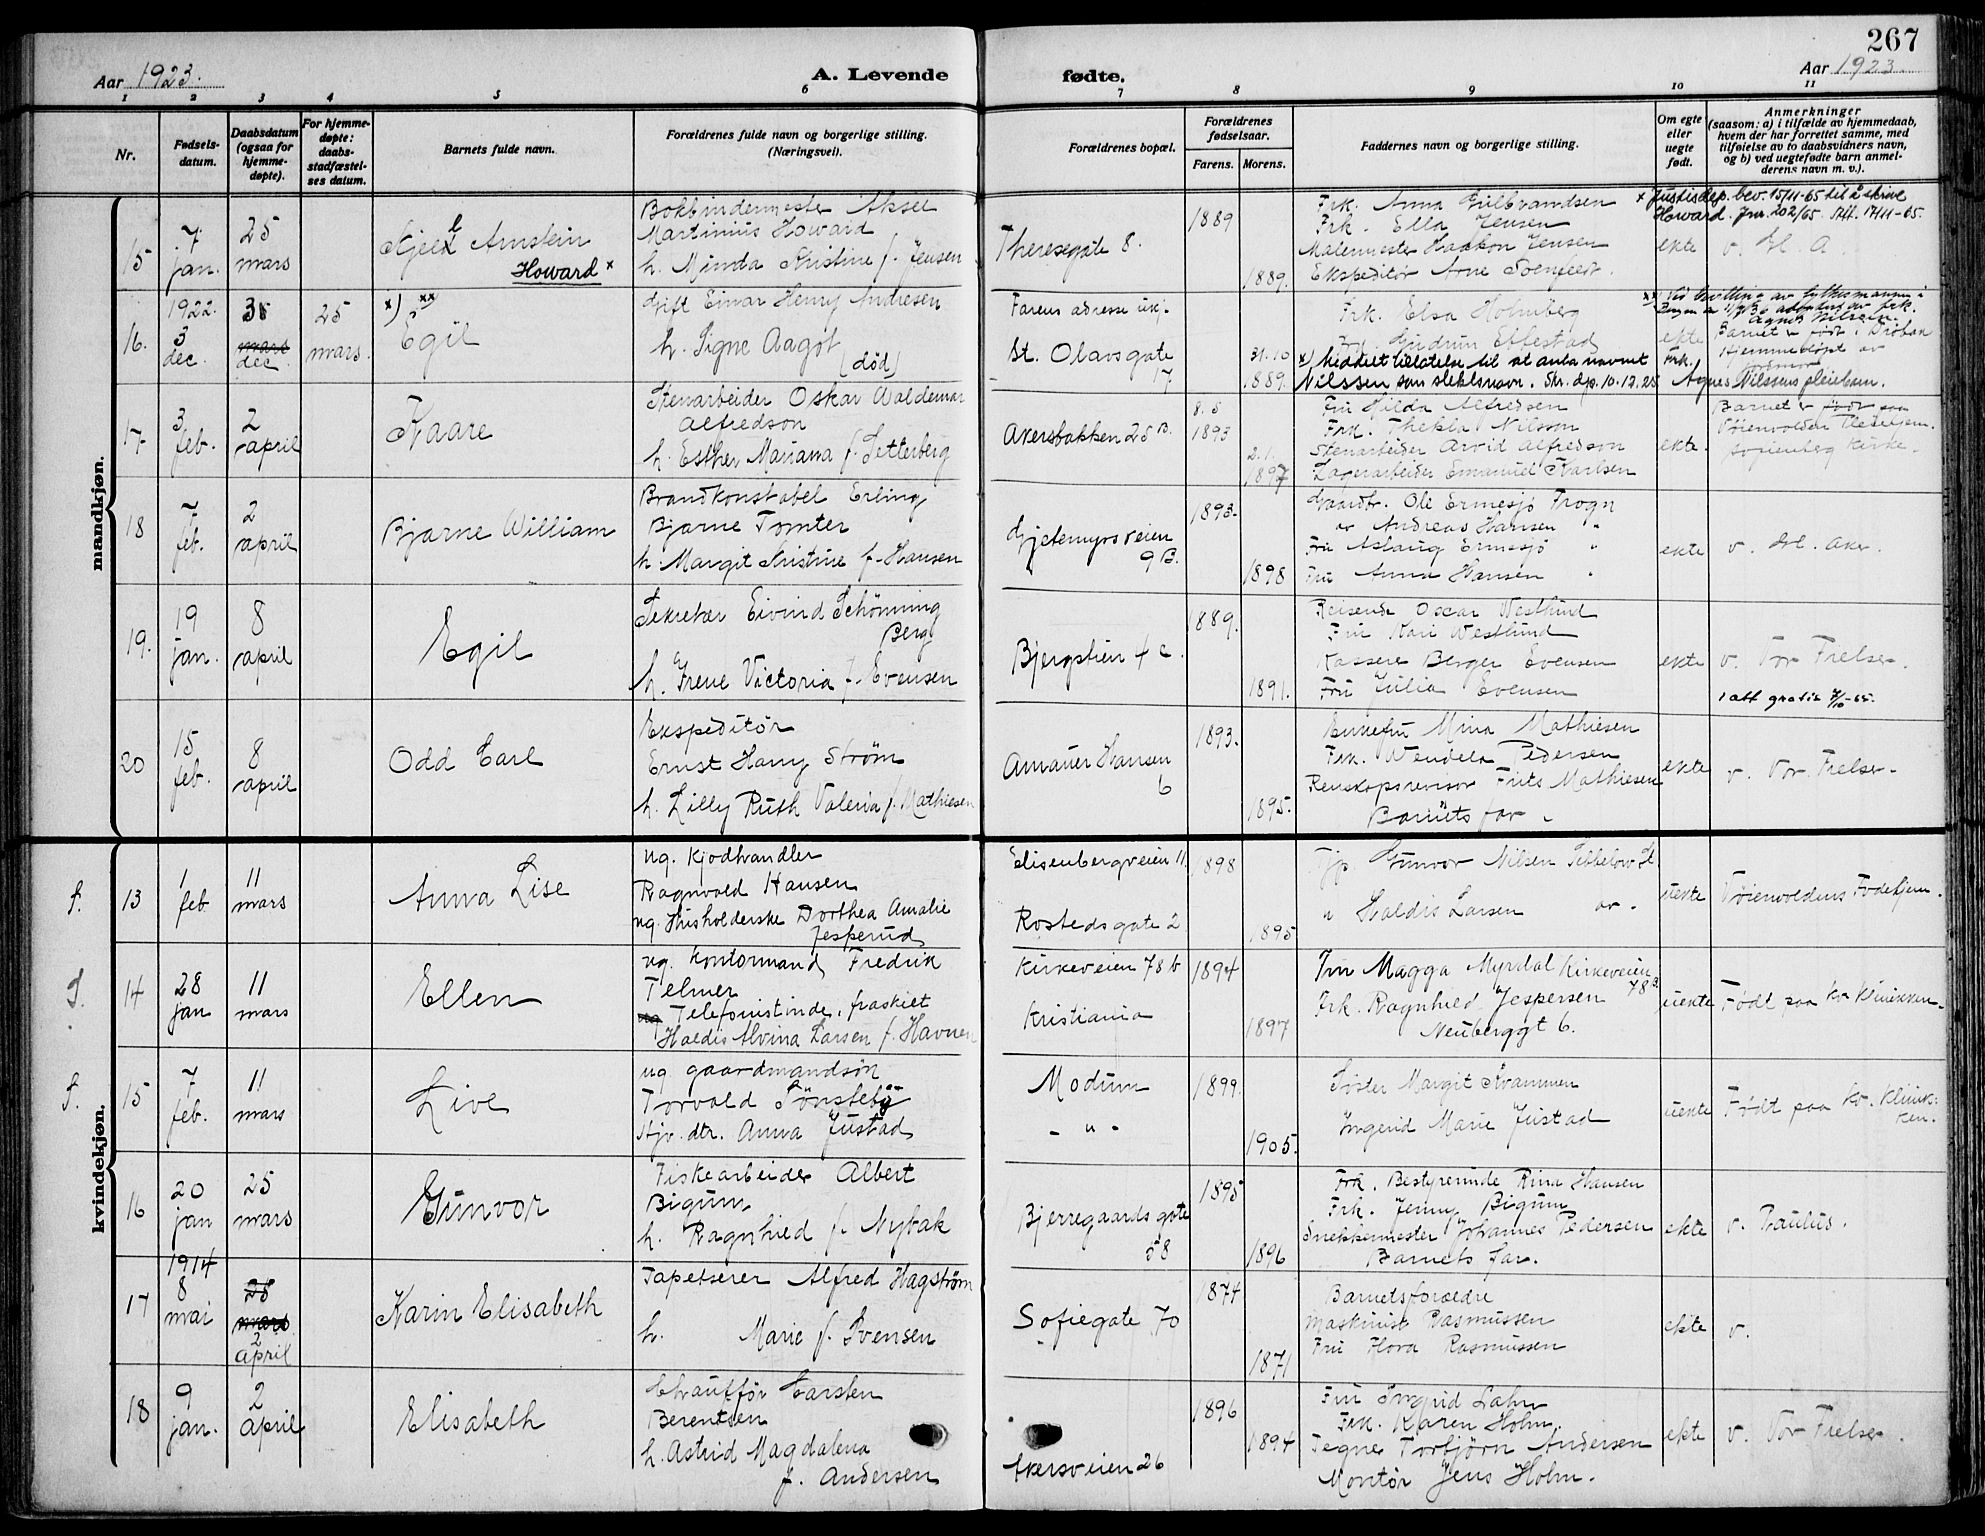 267
Aar 1923.
A. Levende fødte.
Aar 1923
1 2 3 4 5 6 7 8 9 10 11
Nr.
Fødsels-
datum.
Daabsdatum
(ogsaa for
hjemme-
døpte).
For hjemme-
døpte:
daabs-
stadfæstel-
ses datum.
Barnets fulde navn.
Forældrenes fulde navn og borgerlige stilling.
(Næringsvei).
Forældrenes bopæl.
Forældrenes
fødselsaar.
Farens. Morens.
Faddernes navn og borgerlige stilling.
Om egte
eller
uegte
født.
Anmerkninger
(saasom: a) i tilfælde av hjemmedaab,
hvem der har forrettet samme, med
tilføielse av to daabsvidners navn,
og b) ved uegtefødte barn anmel-
derens navn m. v.).
mandkjøn.
15
7
jan.
25
mars
Kjell Arnstein
Howard x
Bokbindermester Aksel
Martinius Howard
h. Minda Kristine f. Jensen
Theresegate 8.
1889
1889.
Frk. Anna Gulbrandsen
Frk. Ella Jensen
Malermester Haakon Jensen
Ekspeditør Arne Svenfeldt.
ekte
x Justisdep. bev. 15/11-65 til å skrive
Howard. Jnr. 202/65. Att. 17/11-65.
16.
1922.
3
dec.
mars
dec.
25
mars.
x) xx)
Egil
Grift Einar Henry Andresen
h. Signe Aagot
(død)
Farens adresse ukj.
St. Olavsgate
17.
31.10
1889.
Frk. Elsa Holmberg
Gudrun Effestad
x) Meddelt tillatelse til at anta navnet
Nilssen som slektsnavn. Skr. dp. 10.12.25
ekte
Barnet er født i Drøbak
Hjemmedøpt av
jordmor
Frk.
Agnes Nilssens pleiebarn.
17.
3
feb.
2
april
Kaare
Stenarbeider Oskar Valdemar
Alfredson
h. Esther Mariana f. Setterberg
Akersbakken 25 B.
8. 5
1893
2. 1.
1897
Fru Hilda Alfredsen
Frk. Thekla Nilsson
Stenarbeider Arvid Alfredson
Lagerarbeider Emanuel Karlsen
ekte.
Barnet er født paa
Tøienvolden Fødehjem.
Sofienberg kirke.
18
7
feb.
2
april
Bjarne William
Brandkonstabel Erling
Bjarne Tomter
h. Margit Kristine f. Hansen
Gjetemyrsveien
9 B.
1893.
1898
Gaardbr. Ole Ermesjø Frogn
Andreas Hansen "
Fru Aslaug Ermesjø "
Fru Anna Hansen "
ekte
v. Gl. Aker.
19.
19
jan.
8
april
Egil
Sekretær Eivind Schønning
Berg
h. Irene Victoria f. Evensen
Bjergstien 4 c.
1889.
1891.
Reisende Oscar Westlund
Fru Kari Westlund
Kasserer Berger Evensen
Fru Julia Evensen
ekte
v. Vor Frelser.
1 att gratis 7/10-65.
20
15
feb.
8
april
Odd Carl
Ekspeditør
Ernst Harry Strøm
h. Lilly Ruth Valeria f. Mathiesen
Amauer Hansen
6
1893.
1895.
Enkefru Mina Mathiesen
Frk. Wendela Pedersen
Renskapsrevisor Frits Mathiesen
Barnets far.
ekte
v. Vor Frelser.
kvindekjøn.
S.
13
1
feb
11
mars
Anna Lise
ug. kjødhandler
Ragnvald Hansen
ug. Husholderske Dorthea Amalie
Jesperud
Elisenbergveien 11.
Rostedsgate 2
1898
1895
Gunvor Nilsen
" Haldis Larsen
uekte
Tøienvoldens Fødehjem.
S.
14
28
jan
11
mars
Ellen
ug. kontormand Fredrik
Telmer
ug Telefonistinde, fraskilt
Haldis Alvina Larsen f. Havnen
Kirkeveien 78 b
Kristiania
1894
1897
Fru Magga Myrdal Kirkeveien
78 B
Frk. Ragnhild Jespersen
Neuberggt 6.
uekte
Født paa kv klinikken.
S.
15
7
feb.
11
mars
Live
ug gaardmandsøn
Torvald Sønsteby
Hjv. dtr. Anna Justad
Modum
- " -
1899
1905.
Søster Margit Krammen
Ingerid Marie Justad
uekte
Født paa kv. klinik-
ken.
16
20
jan
25
mars
Gunvor
Fiskearbeider Albert
Bigum
h. Ragnhild f. Nybak
Bjerregaardsgate
58
1895
1896
Frk. Bestyrerinde Rina Hansen
Frk. Jenny Bigum
Snekkermester Johannes Pedersen
Barnets far.
ekte
v. Paulus.
17
1914
8
mai
25
mars
2
april
Karin Elisabeth
Tapetserer Alfred Hagstrøm
h. Marie f. Svensen
Sofiegate 70
1874
1871
Barnets forældre
Maskinist Rasmussen
Fru Flora Rasmussen
ekte
v.
18
9
jan.
2
april
Elisabeth
Chauffør Carsten
Berentsen
h. Astrid Magdalena
f. Andersen
Akersveien 26
1896
1894
Fru Ingrid Lahn
Frk. Karen Holm.
Tegner Torbjørn Andersen
Montør Jens Holm.
ekte
v. Vor Frelser.